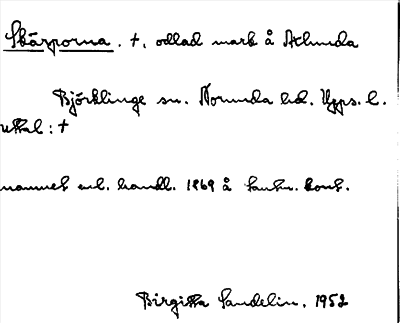 Skärporna. †, odlad mark å Åklunda
Björklinge sn. Norunda hd. Upps. l.
uttal: †
namnet enl. handl. 1869 å lantm. kont.
Birgitta Sandelin. 1952